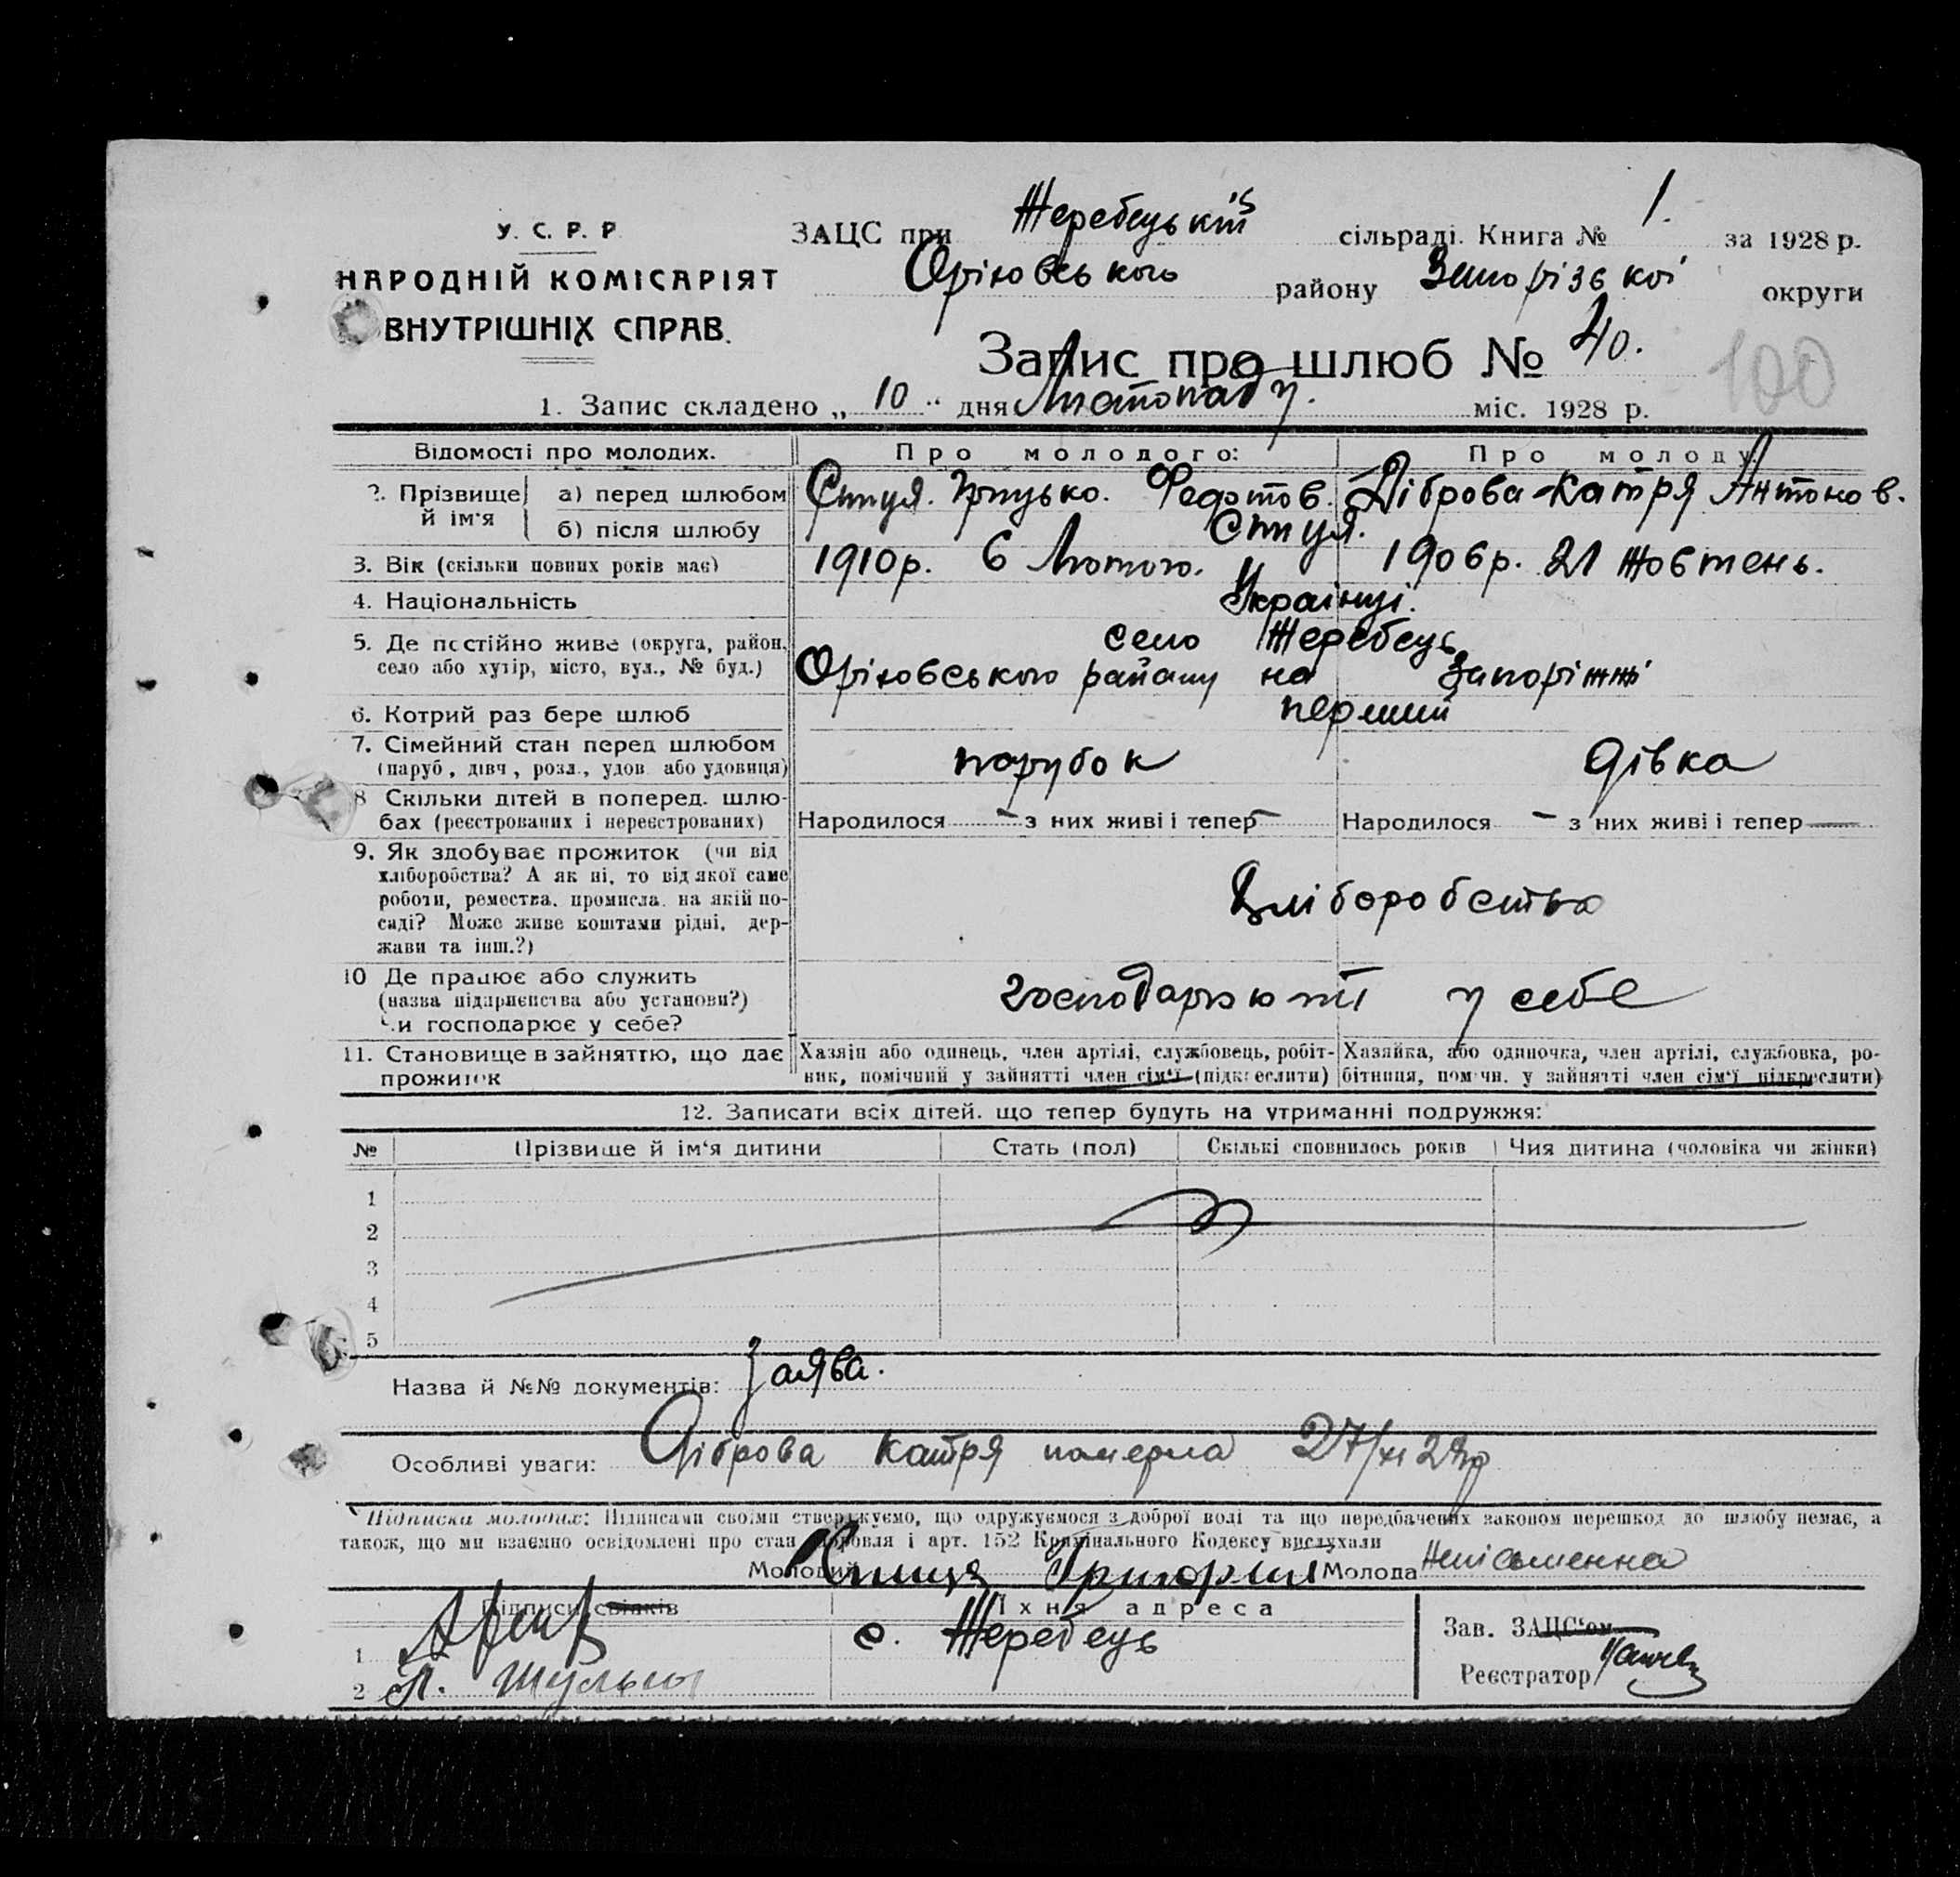 У. С. Р. Р.
НАРОДНІЙ КОМІСАРІЯТ
ВНУТРІШНІХ СПРАВ.
ЗАЦС при Жеребецькій сільраді. Книга № 1. за 1928 р.
Оріхівського району Запорізької округи
Запис про шлюб № 40.
100
1. Запис складено „ 10 “ дня Листопаду. міс. 1928 р.
Відомості про молодих. Про молодого: Про молоду:
2. Прізвище й ім'я а) перед шлюбом Грицько. Федотов. Діброва Катря Антонов.
б) після шлюбу
3. Вік (скільки повних років має) 1910р. 6 Лютого. 1906р. 21 Жовтень.
4. Національність Українці.
5. Де постійно живе (округа, район, село Жеребець
село або хутір, місто, вул., № буд.) Оріхівського району на Запоріжжі
6. Котрий раз бере шлюб перший
7. Сімейний стан перед шлюбом парубок дівка
(паруб., дівч., розл., удов. або удовиця)
8 Скільки дітей в поперед. шлю-
бах (реєстрованих і нереєстрованих) Народилося – з них живі і тепер – Народилося – з них живі і тепер –
9. Як здобуває прожиток (чи від
хліборобства? А як ні, то від якої саме
роботи, ремества, промисла, на якій по-
саді? Може живе коштами рідні, дер-
жави та інш.?)
Хліборобства
10 Де працює або служить
(назва підприємства або установи?)
Чи господарює у себе?
господарюють у себе
11. Становище в зайняттю, що дає
прожиток
Хазяїн або одинець, член артілі, службовець, робіт-
ник, помічний у зайнятті член сім'ї (підкреслити)
Хазяйка, або одиночка, член артілі, службовка, ро-
бітниця, помічн. у зайнятті член сім'ї підкреслити)
12. Записати всіх дітей, що тепер будуть на утриманні подружжя:
№ Прізвище й ім'я дитини Стать (пол) Скількі сповнилось років Чия дитина (чоловіка чи жінки)
1
2
3
4
5
Назва й №№ документів: Заява.
Особливі уваги: Діброва Катря померла 27/XI 28р
Підписка молодих: Підписами своїми стверджуємо, що одружуємося з доброї волі та що передбачених законом перешкод до шлюбу немає, а
також, що ми взаємно освідомлені про стан здоровля і арт. 152 Кримінального Кодексу вислухали
Молодий Григорий Молода Неписьменна
Підписи свідків Їхня адреса
1 с. Жеребець
2
Зав. ЗАЦС'ом
Реєстратор